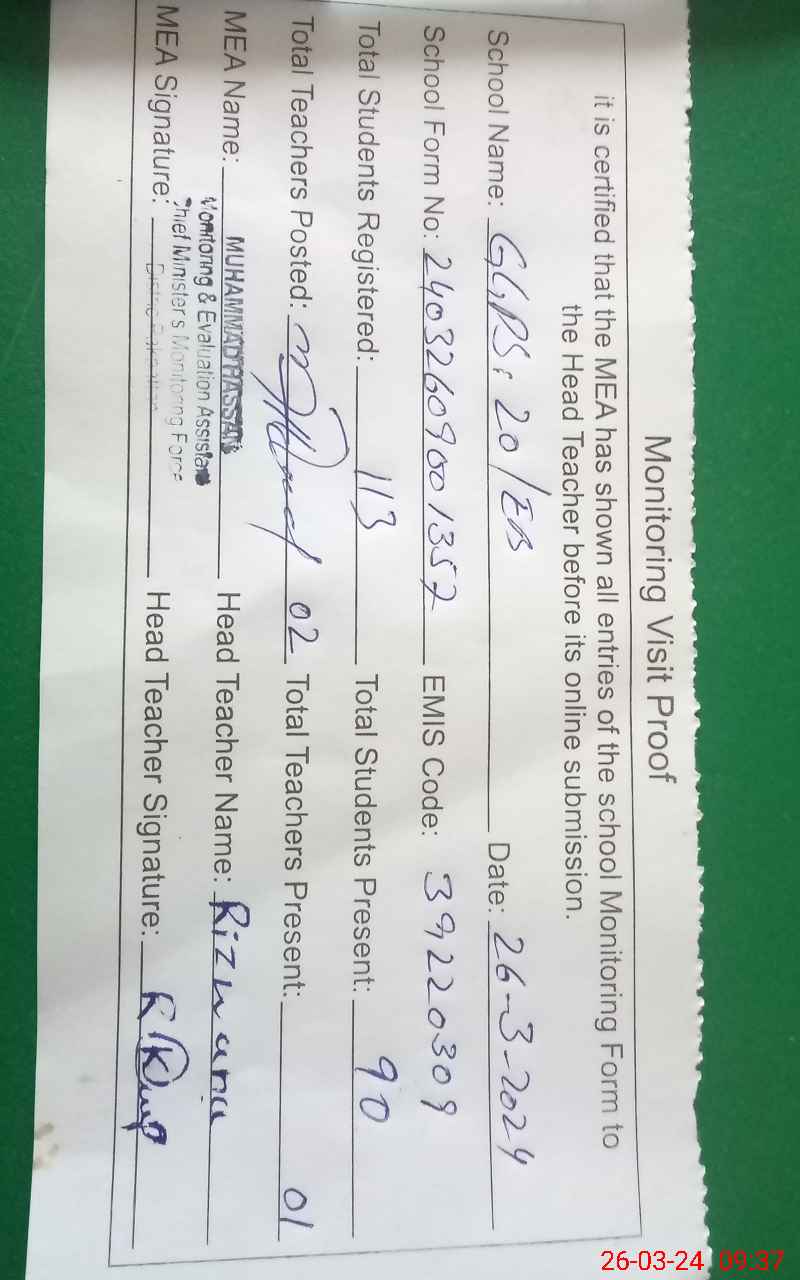 Monitoring Visit Proof
it is certified that the MEA has shown all entries of the school Monitoring Form to
the Head Teacher before its online submission.
School Name: GGPS: 20/EB Date: 26-3-2024
School Form No: 24032609001357 EMIS Code: 39220309
Total Students Registered: 113 Total Students Present: 90
Total Teachers Posted: 02 Total Teachers Present: 01
MEA Name: MUHAMMAD HASSAN Head Teacher Name: Rizwana
Monitoring & Evaluation Assistant
Chief Minister's Monitoring Force
MEA Signature: Head Teacher Signature:
26-03-24 09:37